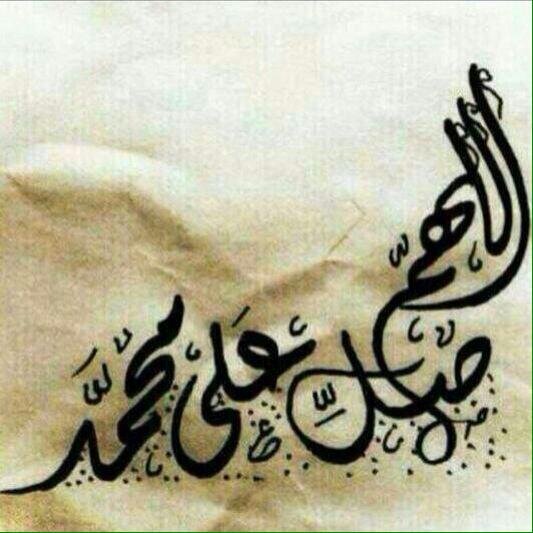 اللهم صلِّ على محمَّد